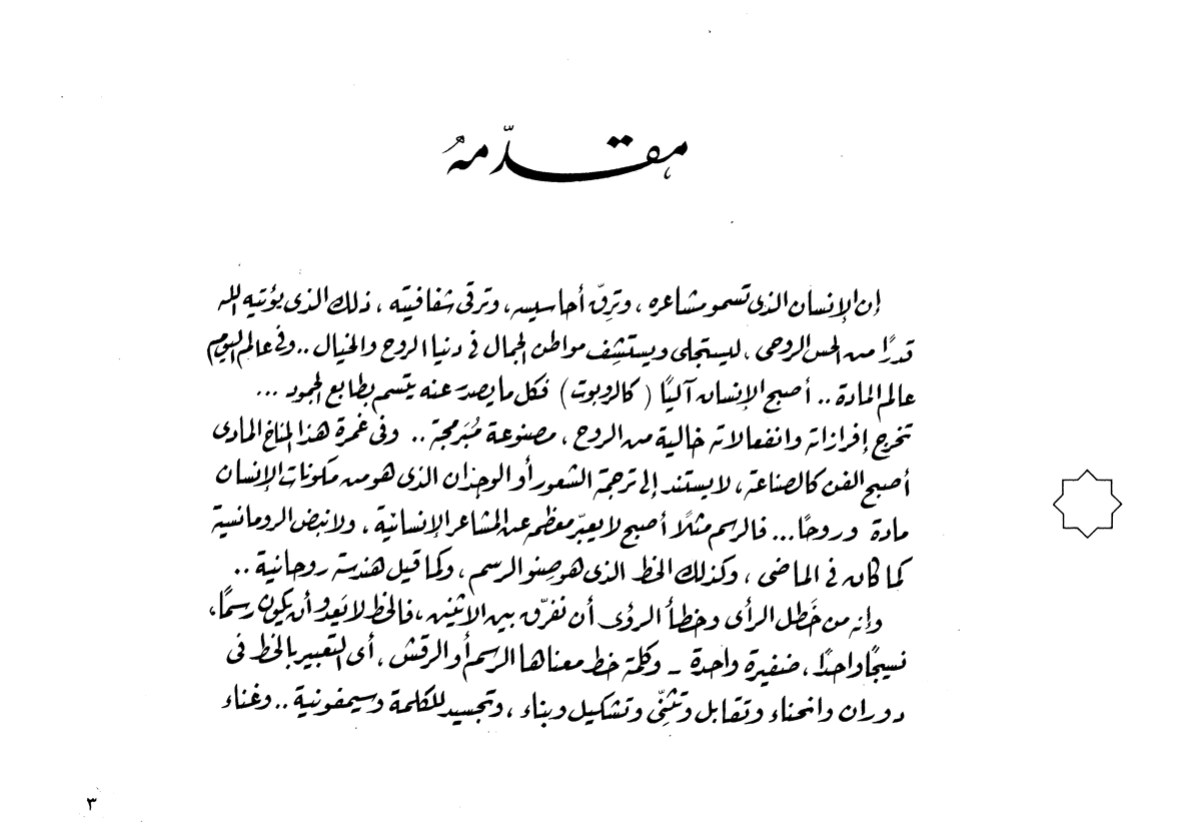 مقدّمه
إن الإنسان الذى تسمو مشاعره ، وترِقّ أحاسيسه ، وترقى شفافيته ، ذلك الذى يؤتيه الله
قدرًا من الحس الروحى ، ليستجلى ويستشِف مواطن الجمال فى دنيا الروح والخيال .. وفى عالم اليوم
عالم المادة .. أصبح الإنسان آليًا ( كالروبوت ) فكل ما يصدر عنه يتسم بطابع الجمود ...
تخرج إفرازاته وانفعالاته خالية من الروح ، مصنوعة مُبَرمجة .. وفى غمرة هذا المناخ المادى
أصبح الفن كالصناعة ، لا يستند إلى ترجمة الشعور أو الوجدان الذى هو من مكونات الإنسان
مادة وروحًا ... فالرسم مثلًا أصبح لا يعبّر معظمه عن المشاعر الإنسانية ، ولا نبض الرومانسية
كما كان فى الماضى ، وكذلك الخط الذى هو صِنو الرسم ، وكما قيل هندسة روحانية ..
وإنه من خَطل الرأى وخطأ الرؤى أن نفرّق بين الاثنين ، فالخط لا يَعدو أن يكون رسمًا،
نسيجًا واحدًا ، ضفيرة واحدة - وكلمة خط معناها الرسم أو الرقش ، أى التعبير بالخط فى
دوران وانحناء وتقابل وتثنِّى وتشكيل وبناء ، وتجسيد للكلمة وسيمفونية .. وغناء
٣